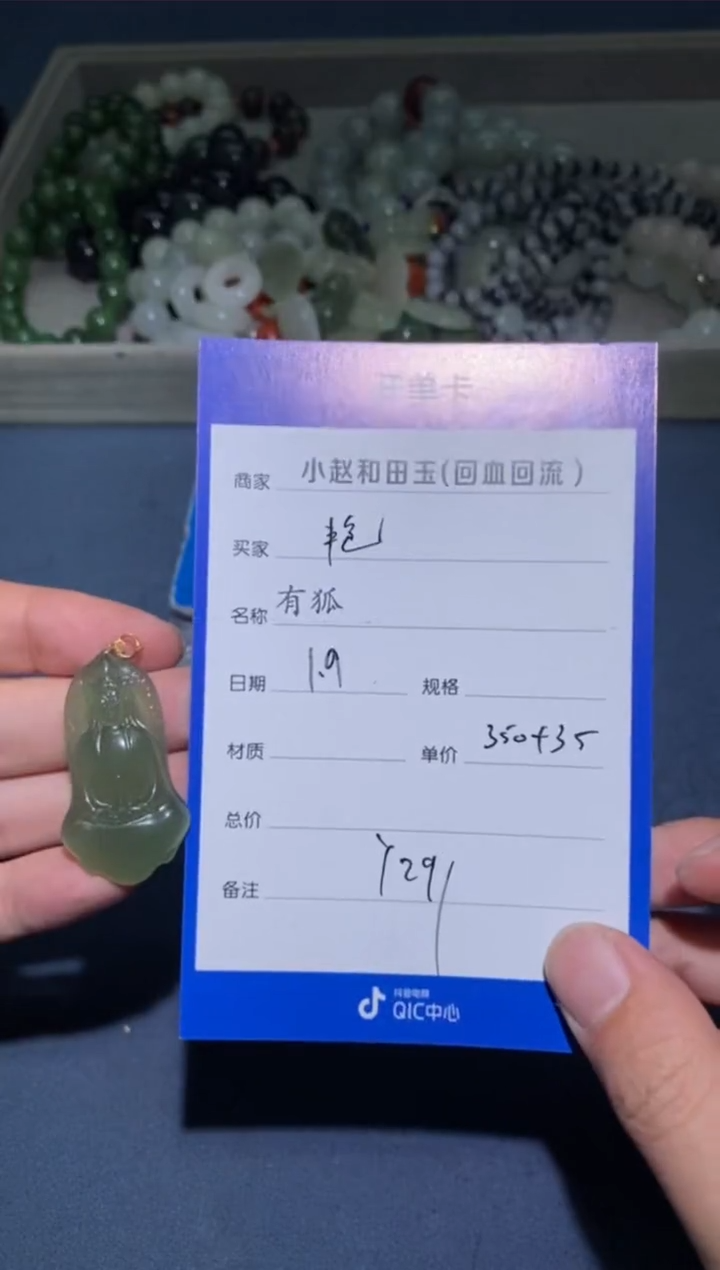 开单卡
商家 小赵和田玉(回血回流)
买家 艳
名称 有狐
日期 1.9 规格
材质 单价 350+35
总价
备注 Y291
抖音电商
QIC中心